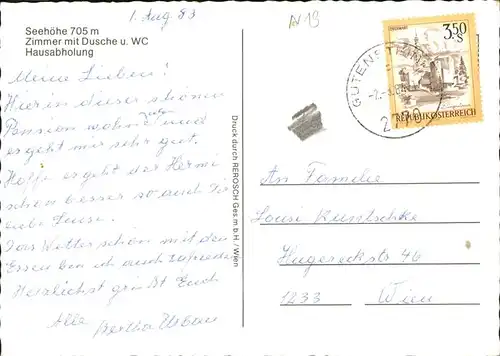 1. Aug. 83
N 19
Seehöhe 705 m
Zimmer mit Dusche u. WC
Hausabholung
Meine Lieben!
Hier in dieser schönen
Pension wohne ich und
es geht mir sehr gut.
Hoffe es geht der Hermi
schon besser so auch Dir
liebe Luise.
Das Wetter schön mit dem
Essen bin ich auch zufrieden
Herzlichst grüßt Euch
Alle Bertha Urban
Druck durch REROSCH Ges.m.b.H./Wien
3.50 S
REPUBLIK ÖSTERREICH
GUTENSTEIN
2770
An Familie
Louise
Hugereckstr 46
1233 Wien